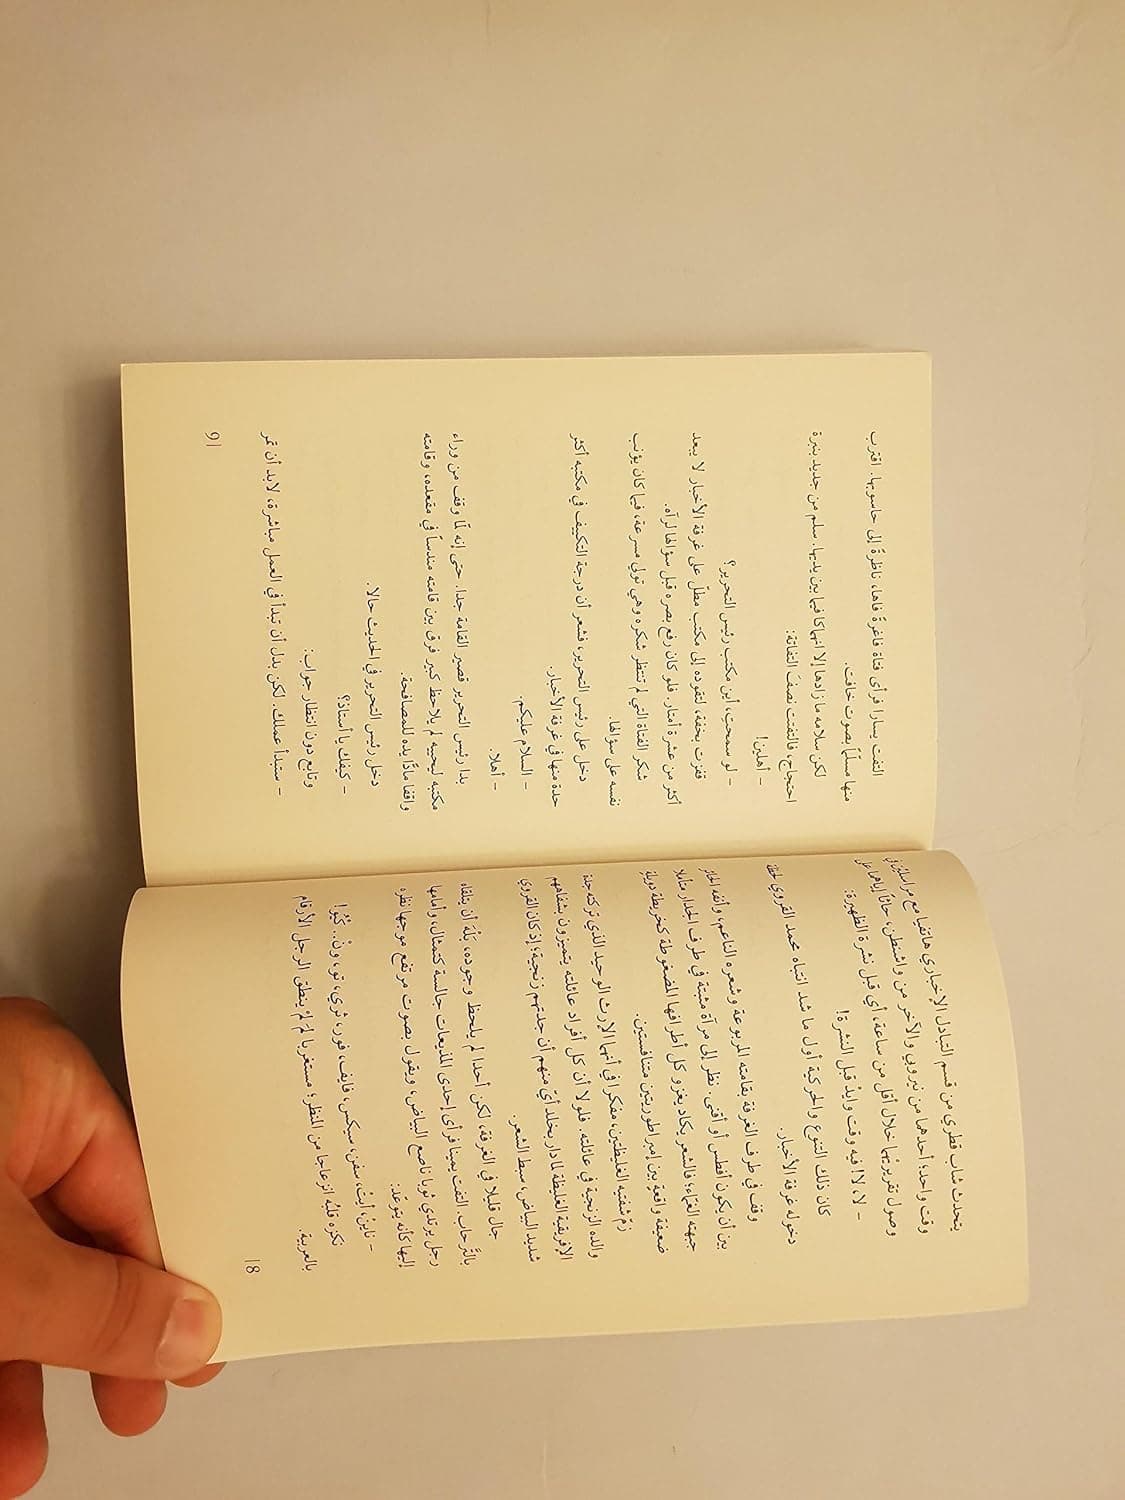 يتحدث شاب قطري من قسم التبادل الإخباري هاتفيا مع مراسلَين في
وقت واحد؛ أحدهما من نيروبي والآخر من واشنطن، حاثّاً إياهما على
وصول تقريريْهما خلال أقل من ساعة، أي قبل نشرة الظهيرة:
- لا، لا! فيه وقت وايدْ قبل النشرة!
كان ذلك التنوع والحركية أول ما شد انتباه محمد القروي لحظة
دخوله غرفة الأخبار.
وقف في طرف الغرفة بقامته المربوعة وشعره الناعم، وأنفه الحائر
بين أن يكون أفطس أو أقنى. نظر إلى مرآة مثبتة في طرف الجدار متأملا
جبهته الغمّاء؛ فالشعر يكاد يغزو كل أطرافها المضغوطة كخريطة دويلةٍ
ضعيفة واقعةٍ بين إمبراطوريتين متنافستين.
زمّ شفتيه الغليظتين، مفكرا في أنهما الإرث الوحيد الذي تركته جدة
والده الزنجية في عائلته. فلولا أن كل أفراد عائلته يتميزون بشفاههم
الإفريقية الغليظة لما دار بخلد أيٍّ منهم أن جدتهم زنجية؛ إذ كان القروي
شديد البياض، سبط الشعر.
جال قليلا في الغرفة، لكن أحدا لم يلحظ وجوده، بَلْهَ أن يتلقاه
بالتّرحاب. التفت يمينا فرأى إحدى المذيعات جالسة كتمثال، وأمامها
رجل يرتدي ثوبا ناصع البياض، ويقول بصوت مرتفع موجها نظره
إليها كأنه يتوعّد:
- ناينْ، أيتْ، سفن، سيكس، فايف، فور، ثري، تو، ونْ.. كْيُو!
نكزه قلبُه انزعاجا من المنظر؛ مستغربا لمَ لمْ ينطق الرجل الأرقام
بالعربية.
18
التفت يسارا فرأى فتاة فاغرةً فاها، ناظرةً إلى حاسوبها. اقترب
منها مسلّماً بصوت خافت.
لكن سلامه ما زادها إلا انهماكا فيما بين يديها. سلم من جديد بنبرة
احتجاج، فالتفتت نصفَ التفاتة:
- أهلين!
- لو سمحتِ، أين مكتب رئيس التحرير؟
قفزت بخفة، لتقوده إلى مكتب مطلّ على غرفة الأخبار لا يبعد
أكثر من عشرة أمتار. فلو كان رفع بصره قبل سؤالها لرآه.
شكر الفتاة التي لم تنتظر شكره وهي تولي مسرعة، فيما كان يؤنب
نفسه على سؤالها.
دخل على رئيس التحرير، فشعر أن درجة التكييف في مكتبه أكثر
حدة منها في غرفة الأخبار.
- السلام عليكم.
- أهلا.
بدا رئيس التحرير قصير القامة جدا. حتى إنه لمّا وقف من وراء
مكتبه ليحييه لم يلاحظ كبير فرق بين قامته مندساً في مقعده، وقامته
واقفا مادّا يده للمصافحة.
دخل رئيس التحرير في الحديث حالا.
- كيفك يا أستاذ؟
وتابع دون انتظار جواب:
- ستبدأ عملك. لكن بدل أن تبدأ في العمل مباشرة، لابد أن تمر
19